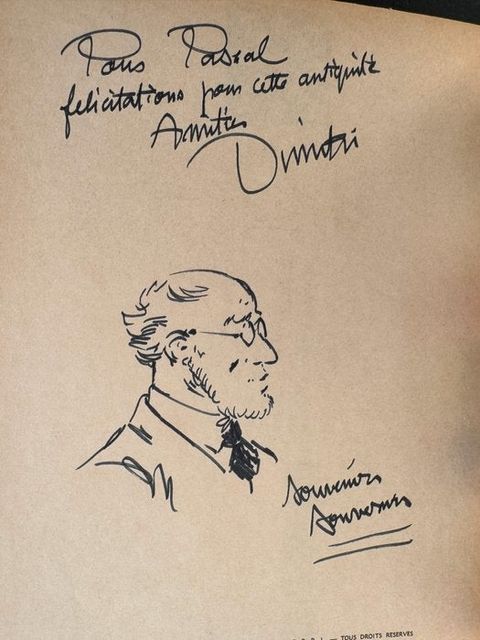 Pour Pascal
felicitations pour cette antiquité
Amitiés
Dimitri
souvenirs
souvenirs
— TOUS DROITS RESERVES